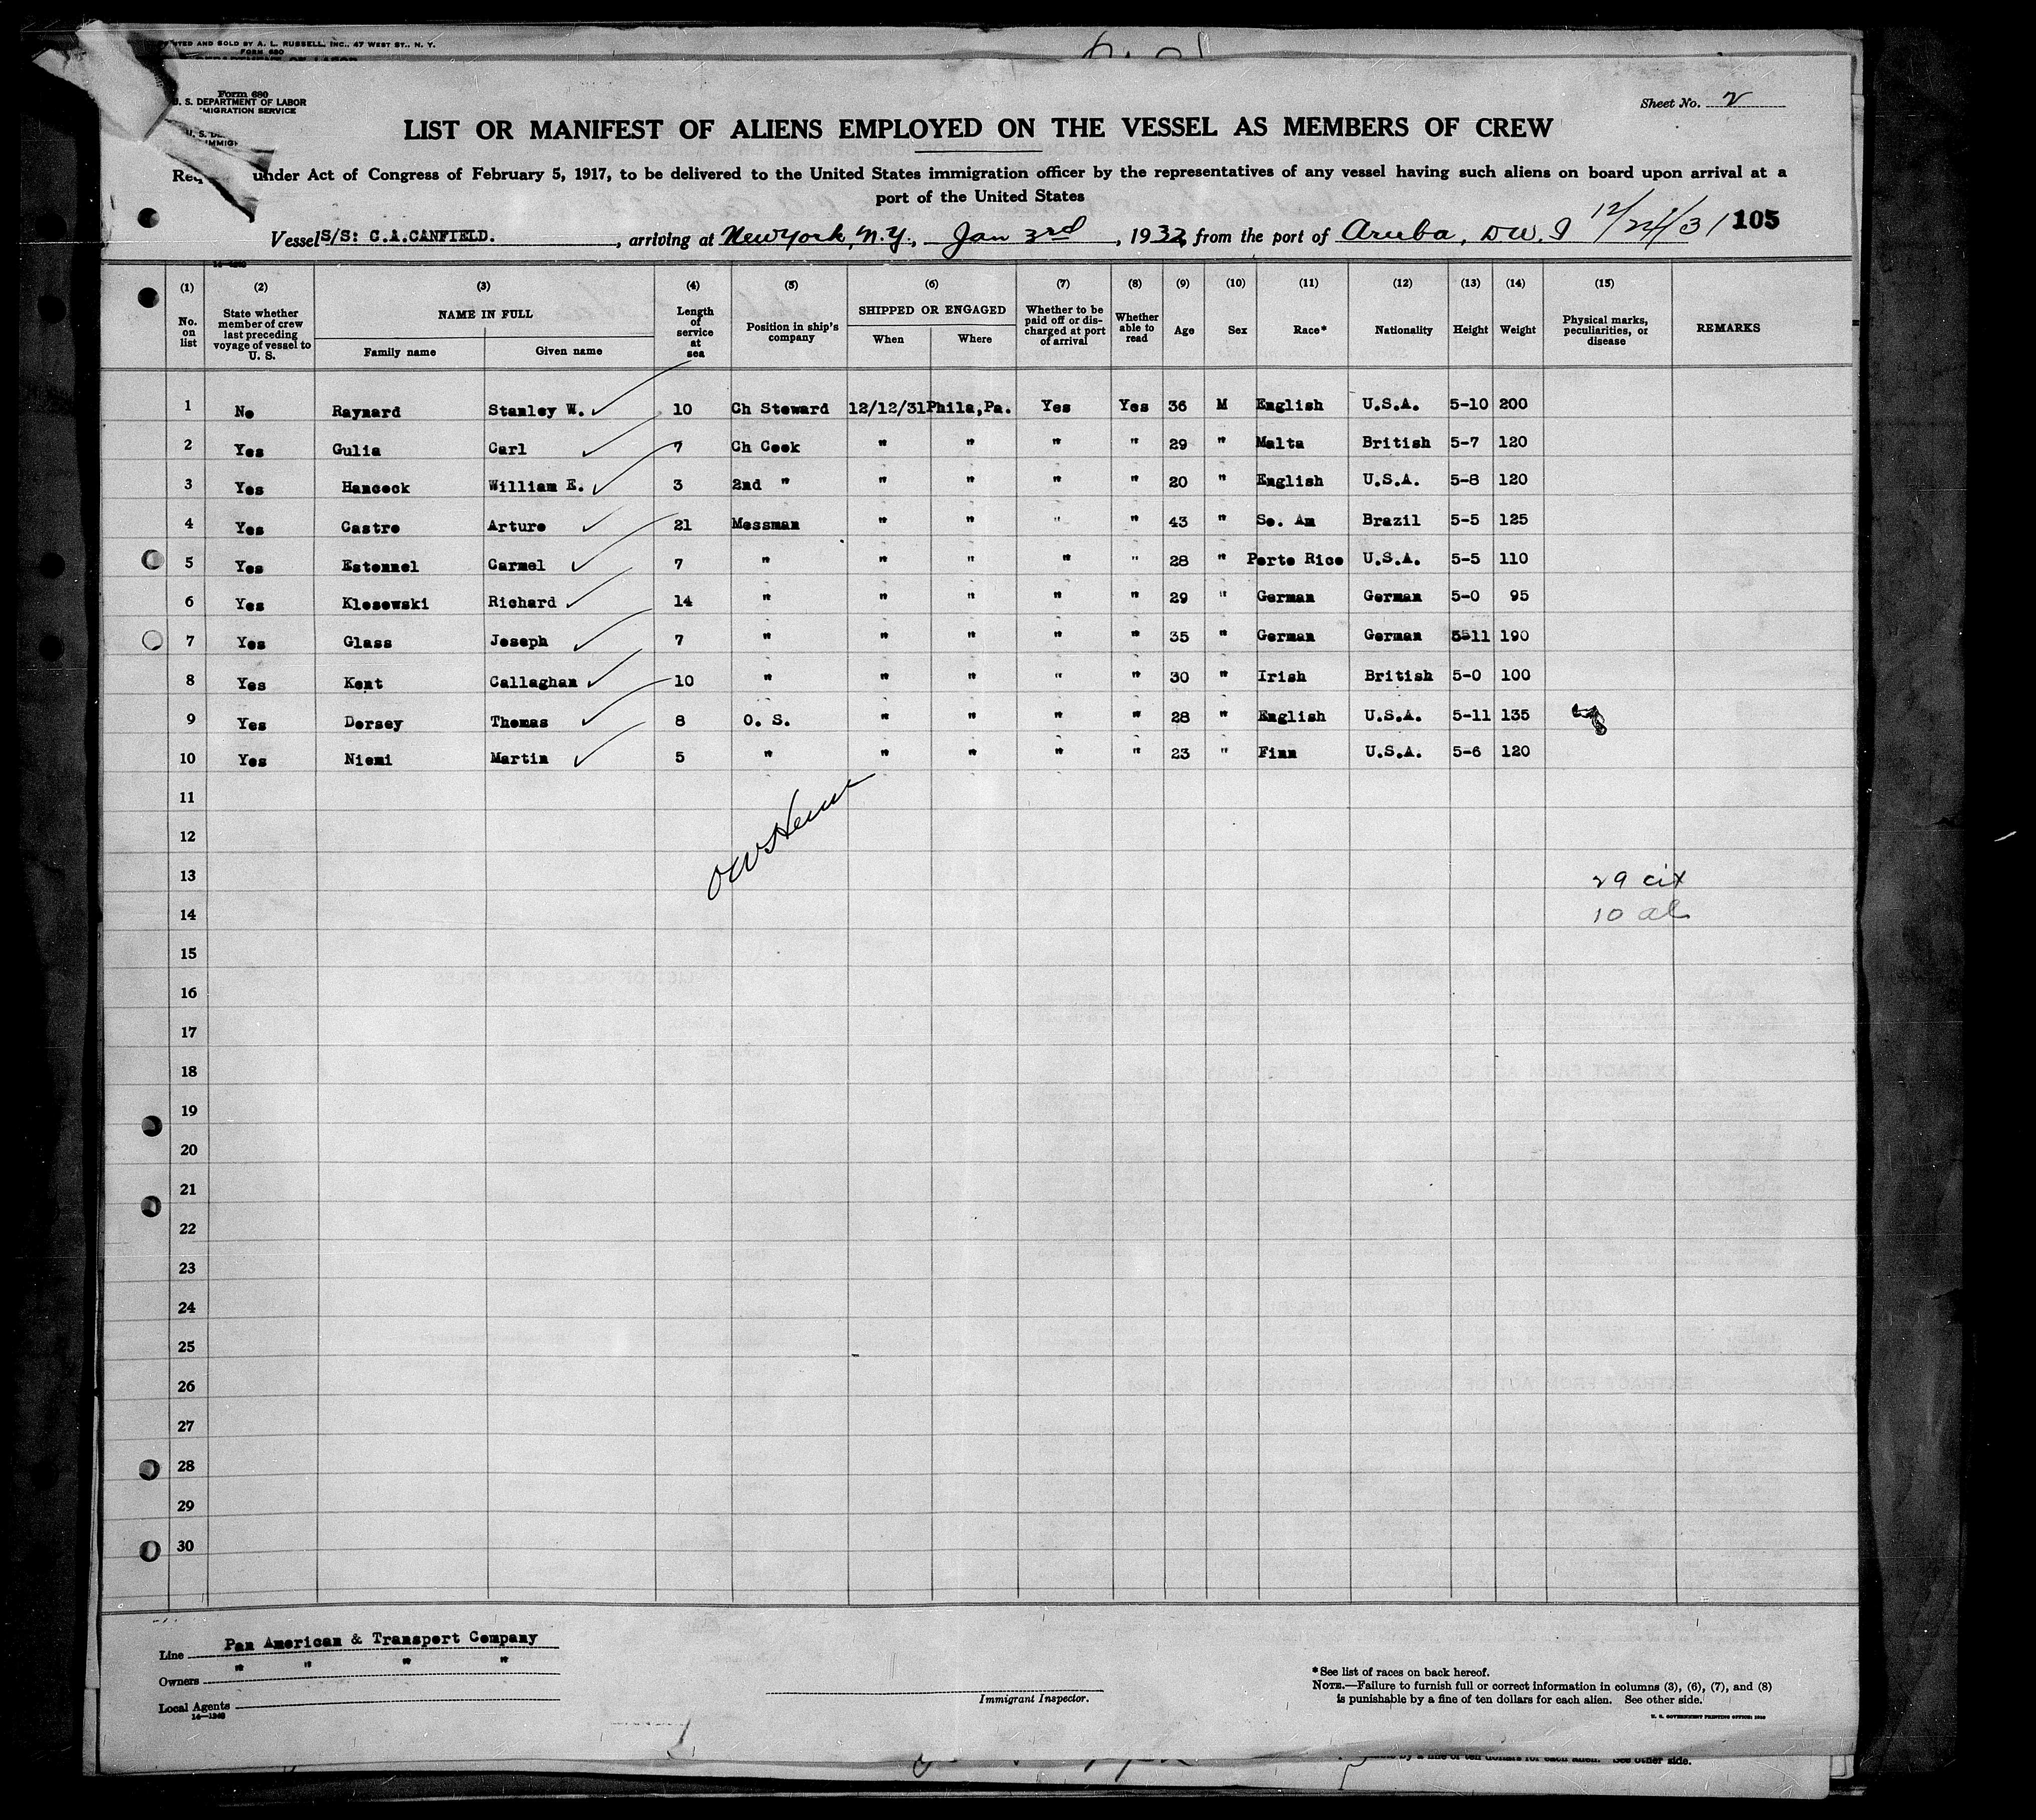 PRINTED AND SOLD BY A. L. RUSSELL, INC., 47 WEST ST., N. Y.
FORM 680
Form 680
U. S. DEPARTMENT OF LABOR
IMMIGRATION SERVICE
Sheet No. 2
LIST OR MANIFEST OF ALIENS EMPLOYED ON THE VESSEL AS MEMBERS OF CREW
under Act of Congress of February 5, 1917, to be delivered to the United States immigration officer by the representatives of any vessel having such aliens on board upon arrival at a
port of the United States
Vessel S/S: C.A.CANFIELD. , arriving at New York, N.Y., Jan 3rd , 1932, from the port of Aruba, D.W.I 12/24/31 105
(1) (2) (3) (4) (5) (6) (7) (8) (9) (10) (11) (12) (13) (14) (15)
No. on list | State whether member of crew last preceding voyage of vessel to U. S. | NAME IN FULL | Length of service at sea | Position in ship's company | SHIPPED OR ENGAGED | Whether to be paid off or discharged at port of arrival | Whether able to read | Age | Sex | Race* | Nationality | Height | Weight | Physical marks, peculiarities, or disease | REMARKS
Family name | Given name | When | Where
1 No Raynard Stanley W. 10 Ch Steward 12/12/31 Phila,Pa. Yes Yes 36 M English U.S.A. 5-10 200
2 Yes Gulia Carl 7 Ch Cook " " " " 29 " Malta British 5-7 120
3 Yes Hancock William E. 3 2nd " " " " " 20 " English U.S.A. 5-8 120
4 Yes Castro Arturo 21 Messman " " " " 43 " So. Am Brazil 5-5 125
5 Yes Estonnel Carmel 7 " " " " " 28 " Porto Rico U.S.A. 5-5 110
6 Yes Klosowski Richard 14 " " " " " 29 " German German 5-0 95
7 Yes Glass Joseph 7 " " " " " 35 " German German 5-11 190
8 Yes Kent Callaghan 10 " " " " " 30 " Irish British 5-0 100
9 Yes Dorsey Thomas 8 O. S. " " " " 28 " English U.S.A. 5-11 135
10 Yes Niemi Martin 5 " " " " " 23 " Finn U.S.A. 5-6 120
11
12
13 29 cit
14 10 al
15
16
17
18
19
20
21
22
23
24
25
26
27
28
29
30
Line Pan American & Transport Company
Owners " " " "
Local Agents
14—1240
Immigrant Inspector.
*See list of races on back hereof.
NOTE.—Failure to furnish full or correct information in columns (3), (6), (7), and (8)
is punishable by a fine of ten dollars for each alien. See other side.
U. S. GOVERNMENT PRINTING OFFICE: 1930
by a fine of ten dollars for each alien. See other side.